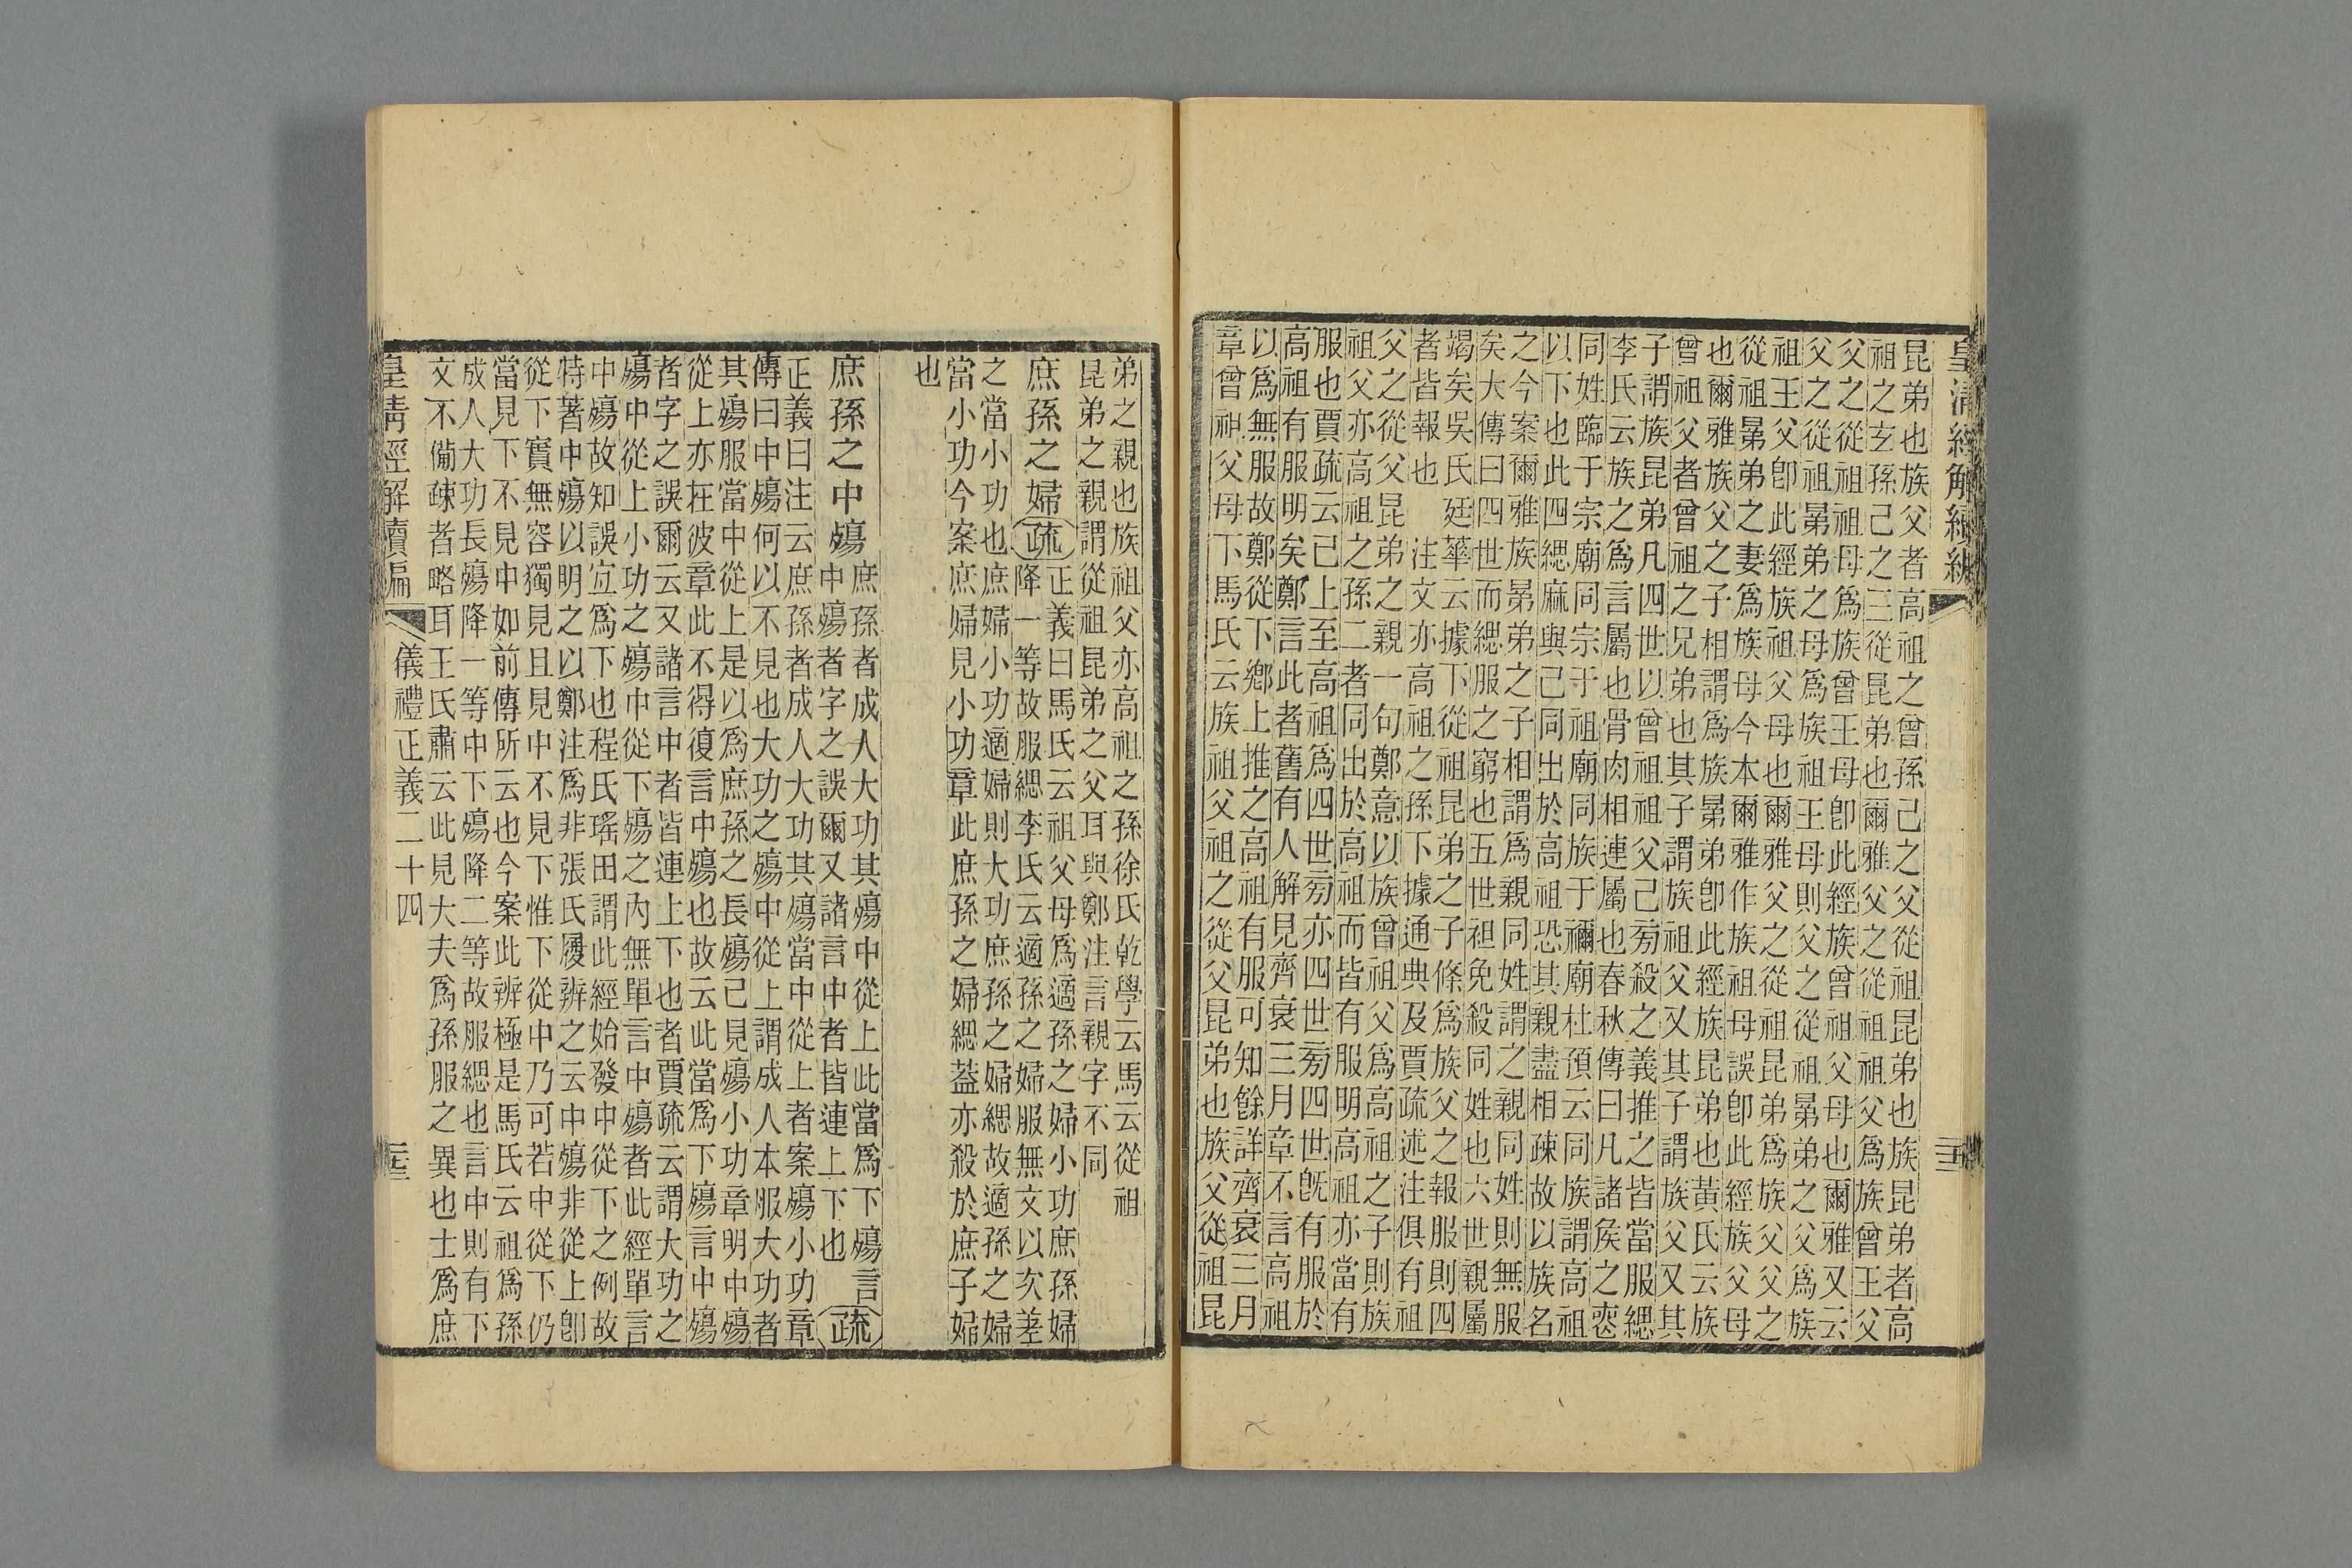 皇清經解續編
昆弟也族父者高祖之曾孫己之父從祖昆弟也族昆弟者高
祖之玄孫己之三從昆弟也爾雅父之從祖祖父爲族曾王父
父之從祖祖母爲族曾王母卽此經族曾祖父母也爾雅又云
父之從祖晜弟之母爲族祖王母則父之從祖晜弟之父爲族
祖王父卽此經族祖父母也爾雅父之從祖昆弟爲族父父之
從祖晜弟之妻爲族母今本爾雅作族祖母誤卽此經族父母
也爾雅族父之子相謂爲族晜弟卽此經族昆弟也黃氏云族
曾祖父者曾祖之兄弟也其子謂族祖父又其子謂族父又其
子謂族昆弟凡四世以曾祖祖父己旁殺之義推之皆當服緦
李氏云族之爲言屬也骨肉相連屬也春秋傳曰凡諸侯之喪
同姓臨于宗廟同宗于祖廟同族于禰廟杜預云同族謂高祖
以下也此四緦麻與己同出於高祖恐其親盡相疎故以族名
之今案爾雅族晜弟之子相謂爲親同姓謂之親同姓則無服
矣大傳曰四世而緦服之窮也五世袒免殺同姓也六世親屬
竭矣吳氏廷華云據下從祖昆弟之子條爲族父之報服則四
者皆報也　注文亦高祖之孫下據通典及賈疏述注俱有祖
父之從父昆弟之親一句鄭意以族曾祖父爲高祖之子則族
祖父亦高祖之孫二者同出於高祖而皆有服明高祖亦當有
服也賈疏云己上至高祖爲四世旁亦四世旁四世旣有服於
高祖有服明矣鄭言此者舊有人解見齊衰三月章不言高祖
以爲無服故鄭從下鄕上推之高祖有服可知餘詳齊衰三月
章曾祖父母下馬氏云族祖父祖之從父昆弟也族父從祖昆
弟之親也族祖父亦高祖之孫徐氏乾學云馬云從祖
昆弟之親謂從祖昆弟之父耳與鄭注言親字不同
庶孫之婦疏正義曰馬氏云祖父母爲適孫之婦小功庶孫婦
降一等故服緦李氏云適孫之婦服無文以次差
之當小功也庶婦小功適婦則大功庶孫之婦緦故適孫之婦
當小功今案庶婦見小功章此庶孫之婦緦葢亦殺於庶子婦
也
庶孫之中殤庶孫者成人大功其殤中從上此當爲下殤言
中殤者字之誤爾又諸言中者皆連上下也疏
正義曰注云庶孫者成人大功其殤當中從上者案殤小功章
傳曰中殤何以不見也大功之殤中從上謂成人本服大功者
其殤服當中從上是以爲庶孫之長殤己見殤小功章明中殤
從上亦在彼章此不得復言中殤也故云此當爲下殤言中殤
者字之誤爾云又諸言中者皆連上下也者賈疏云謂大功之
殤中從上小功之殤中從下殤之內無單言中殤者此經單言
中殤故知誤宜爲下也程氏瑤田謂此經始發中從下之例故
特著中殤以明之以鄭注爲非張氏履辨之云中殤非從上卽
從下實無容獨見且見中不見下惟下從中乃可若中從下仍
當見下不見中如前傳所云也今案此辨極是馬氏云祖爲孫
成人大功長殤降一等中下殤降二等故服緦也言中則有下
文不備疎者略耳王氏肅云此見大夫爲孫服之異也士爲庶
皇淸經解續編
儀禮正義二十四